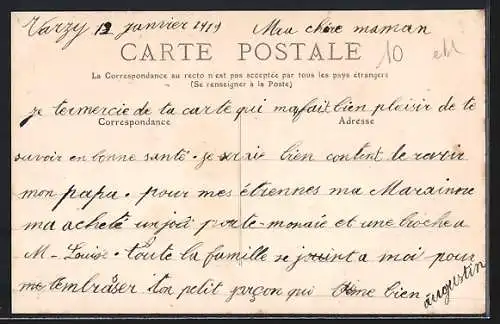 Varzy 12 janvier 1919 Ma chère maman
CARTE POSTALE
10
La Correspondance au recto n'est pas acceptée par tous les pays étrangers
(Se renseigner à la Poste)
je termercie de ta carte qui ma fait bien plaisir de te
Correspondance Adresse
savoir en bonne santé. je serais bien content de ravoir
mon papa. pour mes étrennes ma Marainne
ma acheté un joli porte-monaie et une broche a
M-Louise. toute la famille se joint a moi pour
me tembraser ton petit garçon qui t'aime bien
augustin